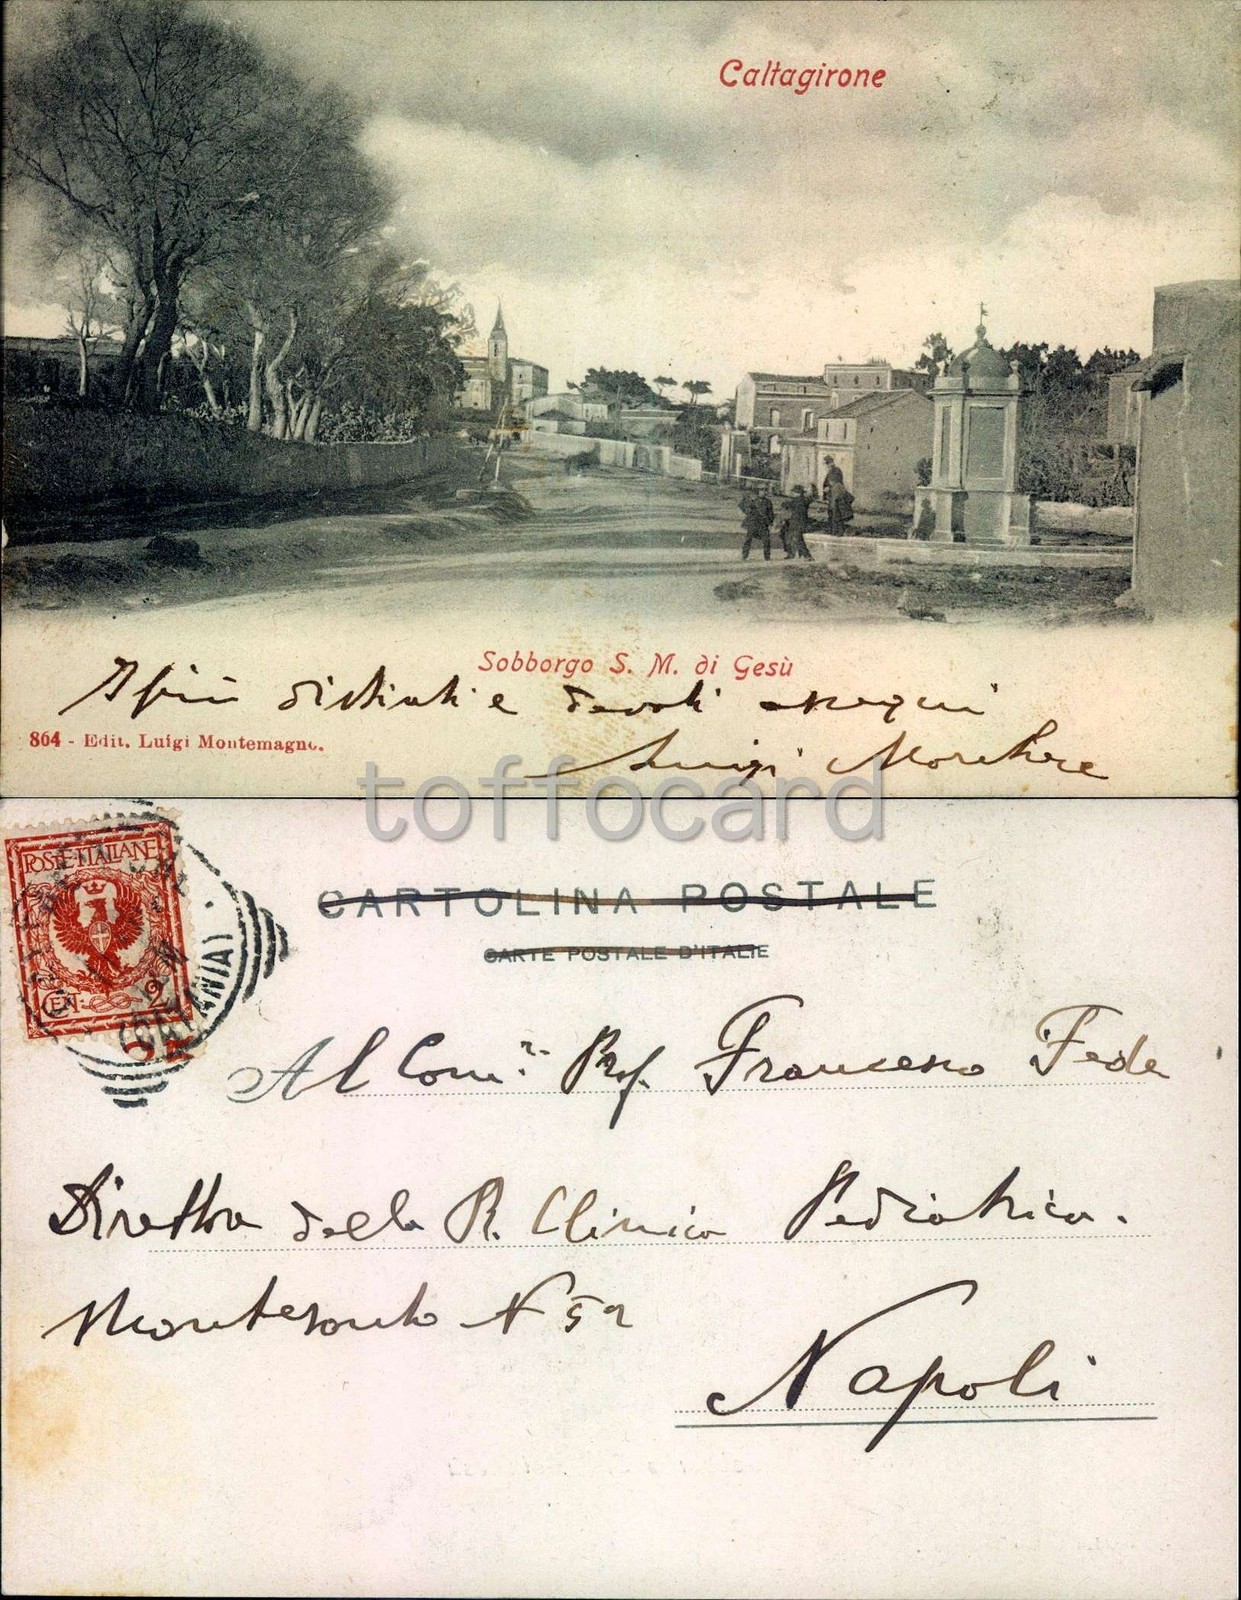 Caltagirone
Sobborgo S. M. di Gesù
I più distinti e devoti ossequi
864 - Edit. Luigi Montemagno.
Luigi
toffocard
POSTE·ITALIANE
CENT. 2
(CATANIA)
CARTOLINA POSTALE
CARTE POSTALE D'ITALIE
Al Comr. Prof. Francesco Fede
Direttore della R. Clinica Pediatrica.
Montesanto N 52
Napoli